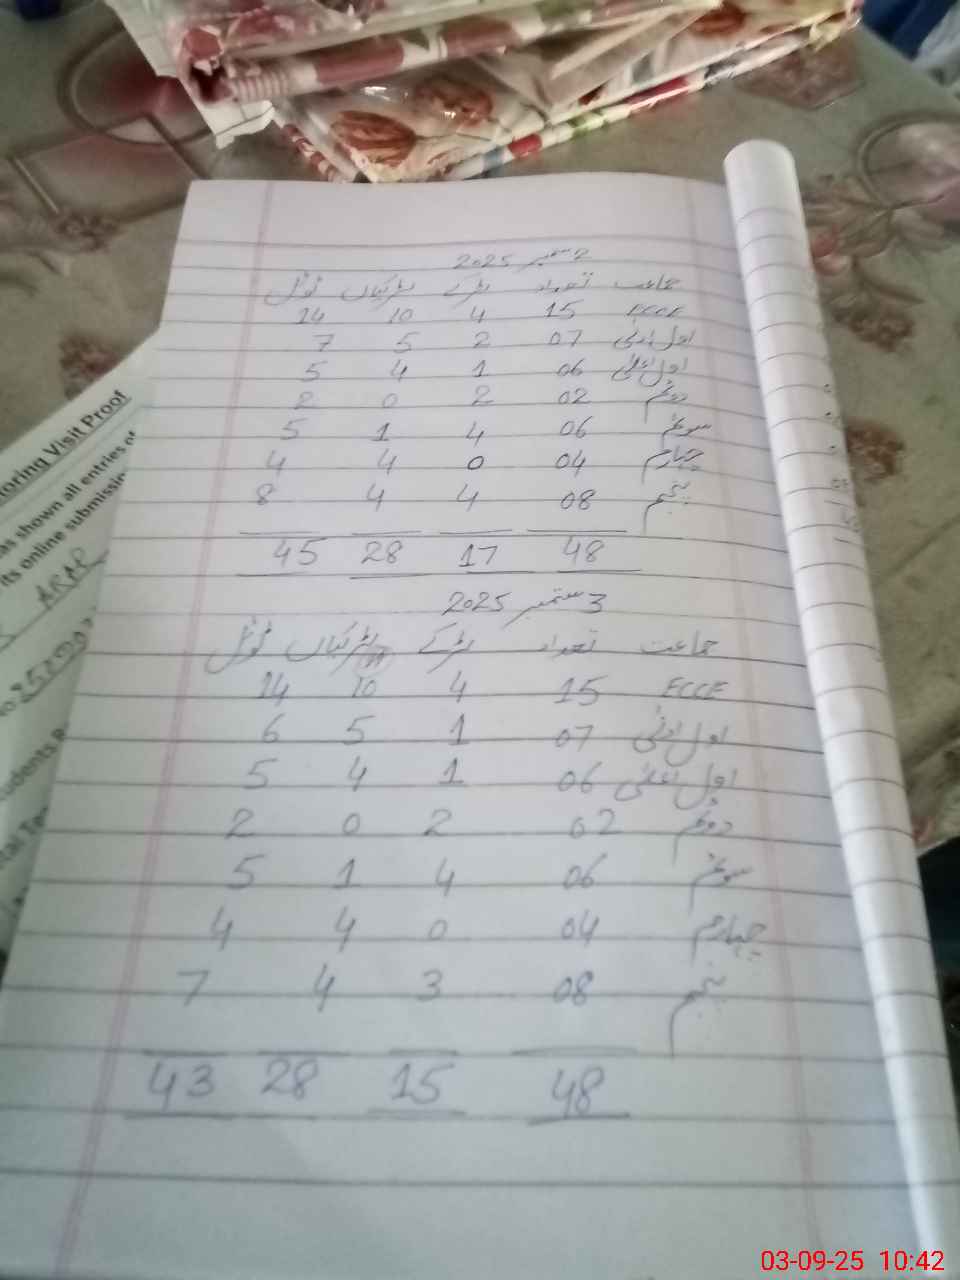 2 ستمبر 2025
جماعت تعداد لڑکے لڑکیاں ٹوٹل
ECCE 15 4 10 14
اول ادنیٰ 07 2 5 7
اول اعلیٰ 06 1 4 5
دوئم 02 2 0 2
سوئم 06 4 1 5
چہارم 04 0 4 4
پنجم 08 4 4 8
48 17 28 45
3 ستمبر 2025
جماعت تعداد لڑکے لڑکیاں ٹوٹل
ECCE 15 4 10 14
اول ادنیٰ 07 1 5 6
اول اعلیٰ 06 1 4 5
دوئم 02 2 0 2
سوئم 06 4 1 5
چہارم 04 0 4 4
پنجم 08 3 4 7
48 15 28 43
toring Visit Proof
as shown all entries of
its online submission
03-09-25 10:42